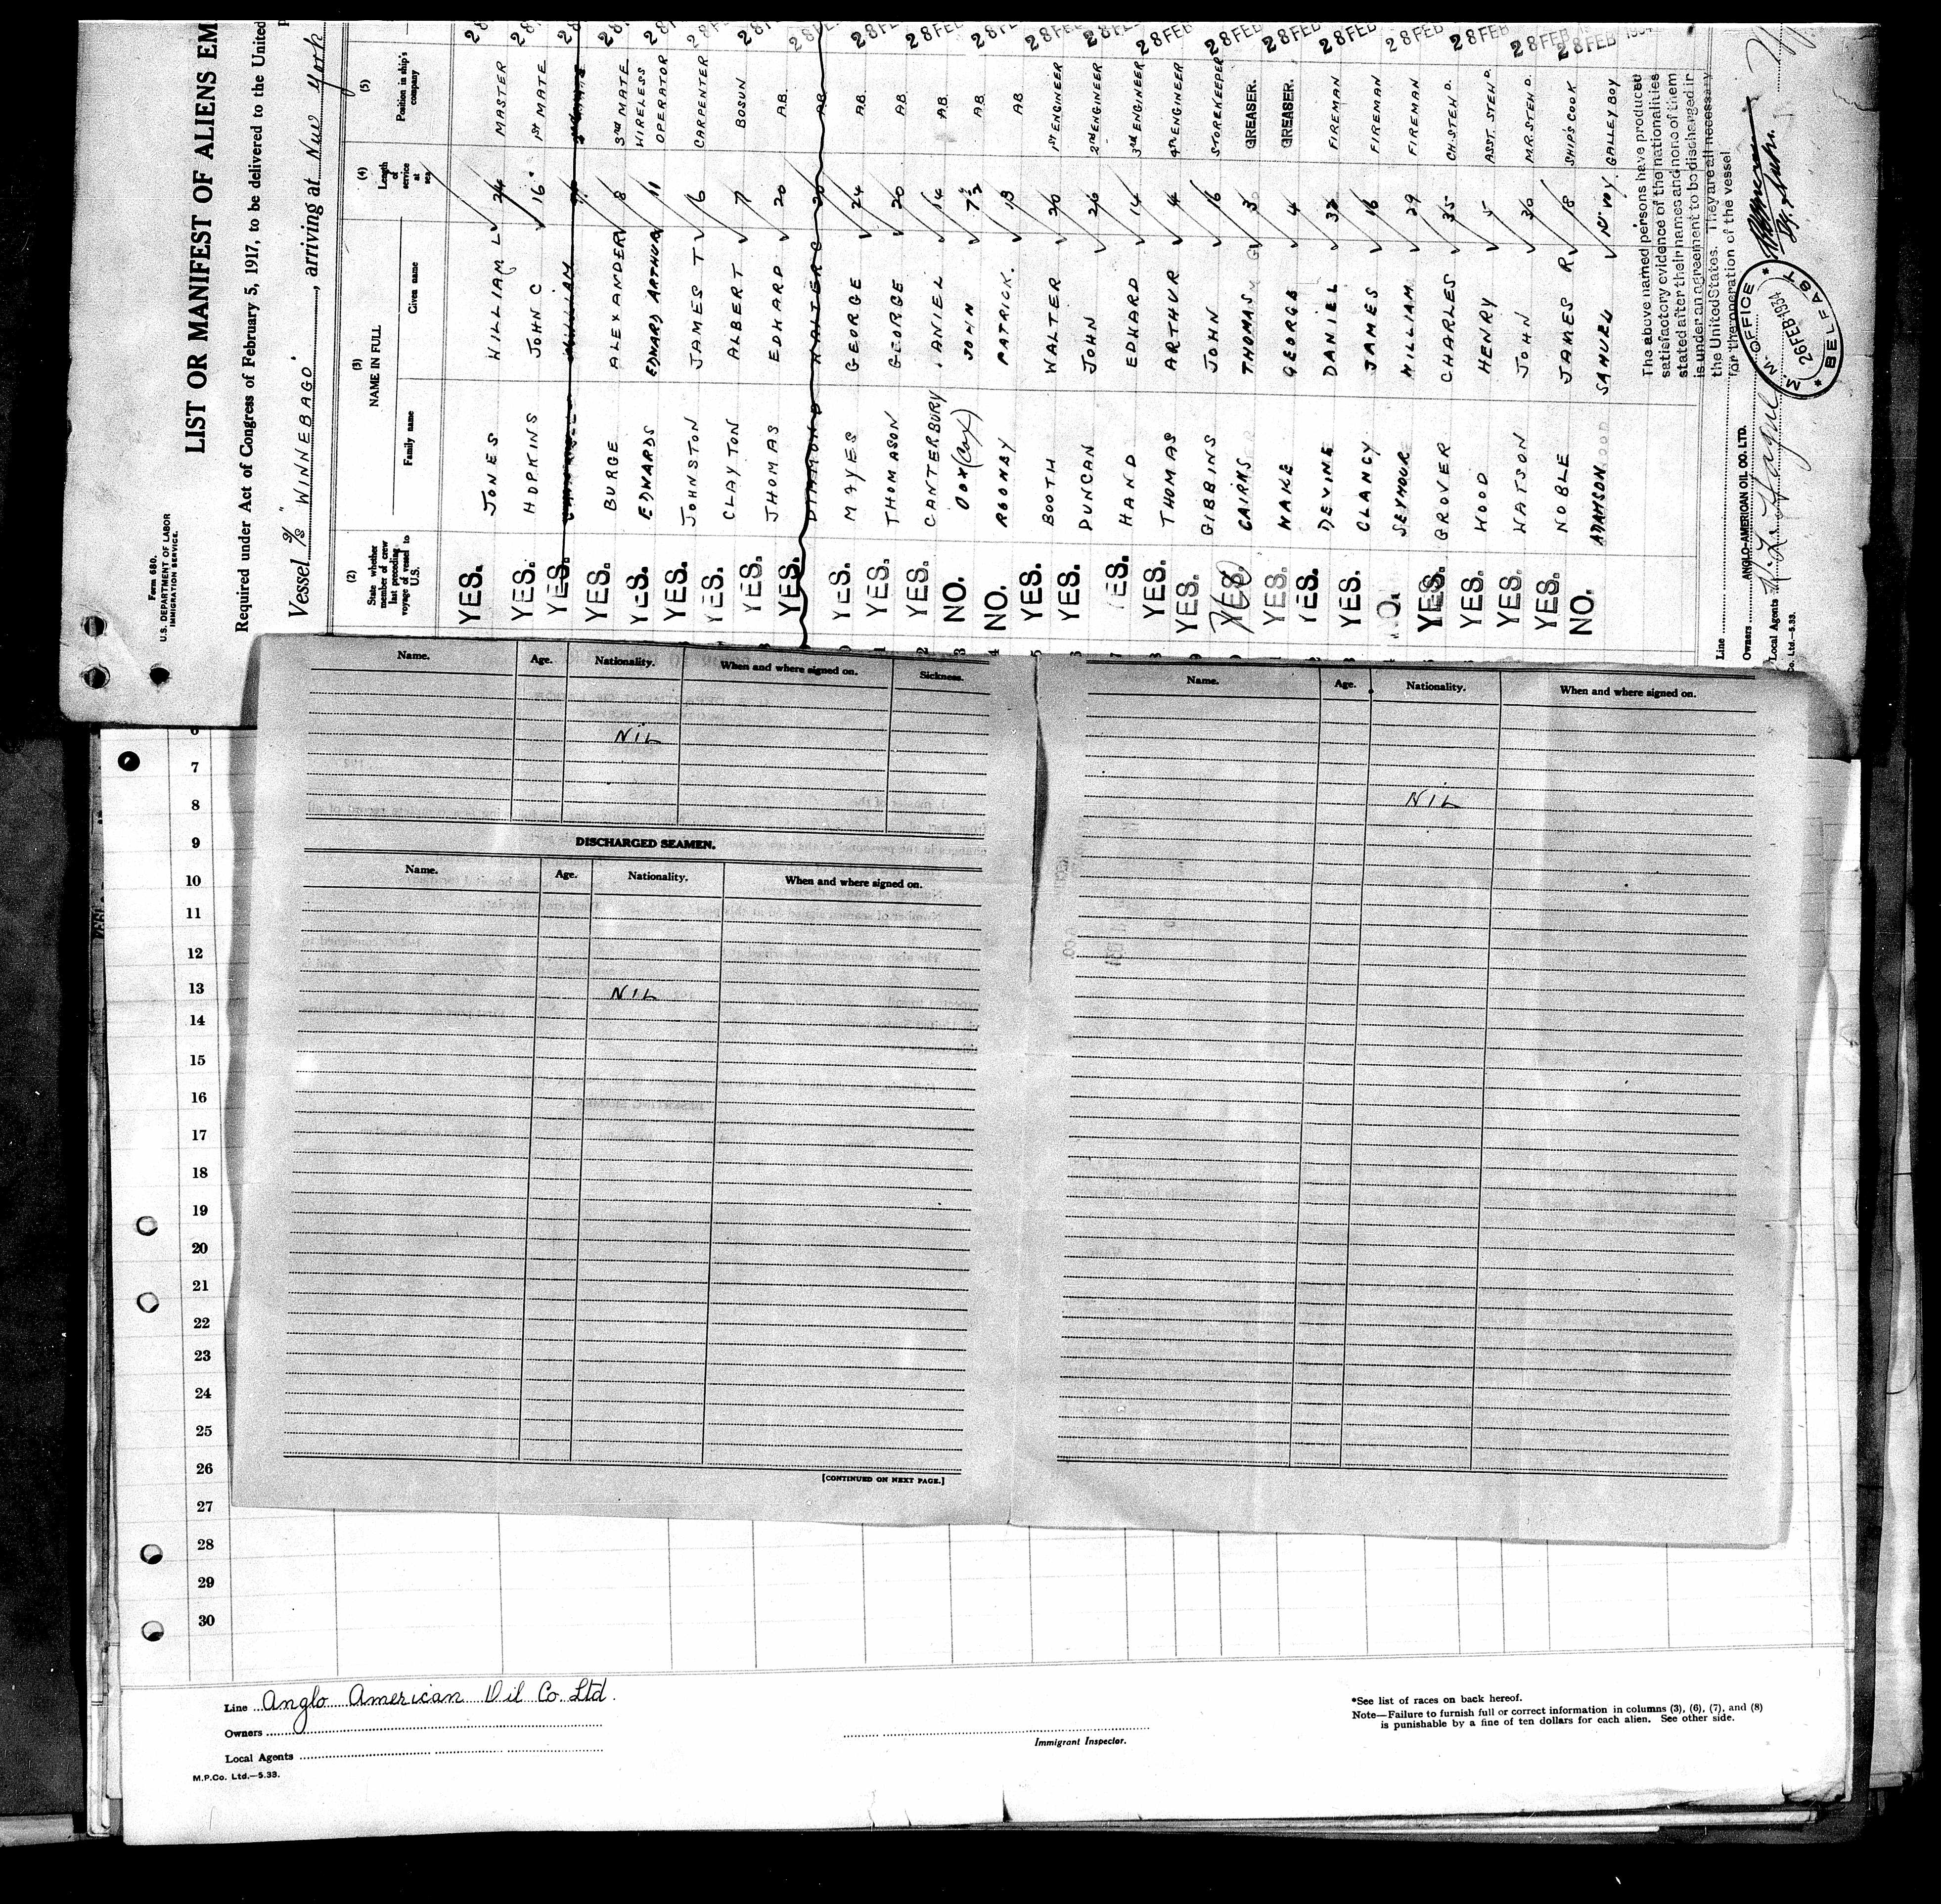 Form 680.
U.S. DEPARTMENT OF LABOR
IMMIGRATION SERVICE.
LIST OR MANIFEST OF ALIENS EM
Required under Act of Congress of February 5, 1917, to be delivered to the United
Vessel S/S "WINNEBAGO", arriving at New York
(2) State whether member of crew last preceding voyage of vessel to U.S.
(3) NAME IN FULL
Family name
Given name
(4) Length of service at sea
(5) Position in ship's company
YES. JONES WILLIAM L 24 MASTER 28
YES. HOPKINS JOHN C 16 1st MATE 28
YES. WILLIAM
YES. BURGE ALEXANDER 8 3rd MATE
YES. EDWARDS EDWARD ARTHUR 11 WIRELESS OPERATOR 28 FEB
YES. JOHNSTON JAMES T 6 CARPENTER 28 FEB
YES. CLAYTON ALBERT 7 BOSUN 28 FEB
YES. THOMAS EDWARD 20 A.B. 28 FEB
YES. DIAMOND WALTER C 20 A.B. 28 FEB
YES. MAYES GEORGE 24 A.B. 28 FEB
YES. THOMASON GEORGE 20 A.B. 28 FEB
YES. CANTERBURY DANIEL 14 A.B. 28 FEB
NO. (Cox) JOHN 7½ A.B. 28 FEB
NO. PATRICK. 13 A.B.
YES. BOOTH WALTER 20 1st ENGINEER 28 FEB
YES. DUNCAN JOHN 26 2nd ENGINEER 28 FEB
YES. HAND EDWARD 14 3rd ENGINEER 28 FEB
YES. THOMAS ARTHUR 4 4th ENGINEER
YES. GIBBINS JOHN 16 STOREKEEPER 28 FEB
YES. No CAIRNS THOMAS 3 GREASER.
YES. WAKE GEORGE 4 GREASER. 28 FEB
YES. DEVINE DANIEL 32 FIREMAN 28 FEB
YES. CLANCY JAMES 16 FIREMAN
NO. SEYMOUR WILLIAM 29 FIREMAN 28 FEB
YES. GROVER CHARLES 35 CH. STEWD. 28 FEB
YES. WOOD HENRY 5 ASST. STEWD.
YES. WATSON JOHN 30 MR. STEWD. 28 FEB
YES. NOBLE JAMES R 18 SHIP'S COOK 28 FEB 1934
NO. ADAMSON SAMUEL GALLEY BOY
The above named persons have produced
satisfactory evidence of the nationalities
stated after their names and none of them
is under an agreement to be discharged in
the United States. They are all necessary
for the operation of the vessel
M.M. OFFICE
26 FEB 1934
BELFAST
Line
Owners ANGLO-AMERICAN OIL CO. LTD.
Local Agents
Co. Ltd.—5.33.
Name. Age. Nationality. When and where signed on. Sickness.
NIL
DISCHARGED SEAMEN.
Name. Age. Nationality. When and where signed on.
NIL
[CONTINUED ON NEXT PAGE.]
Name. Age. Nationality. When and where signed on.
NIL
6
7
8
9
10
11
12
13
14
15
16
17
18
19
20
21
22
23
24
25
26
27
28
29
30
Line Anglo American Oil Co. Ltd.
Owners
Local Agents
M.P.Co. Ltd.—5.33.
Immigrant Inspector.
*See list of races on back hereof.
Note—Failure to furnish full or correct information in columns (3), (6), (7), and (8)
is punishable by a fine of ten dollars for each alien. See other side.